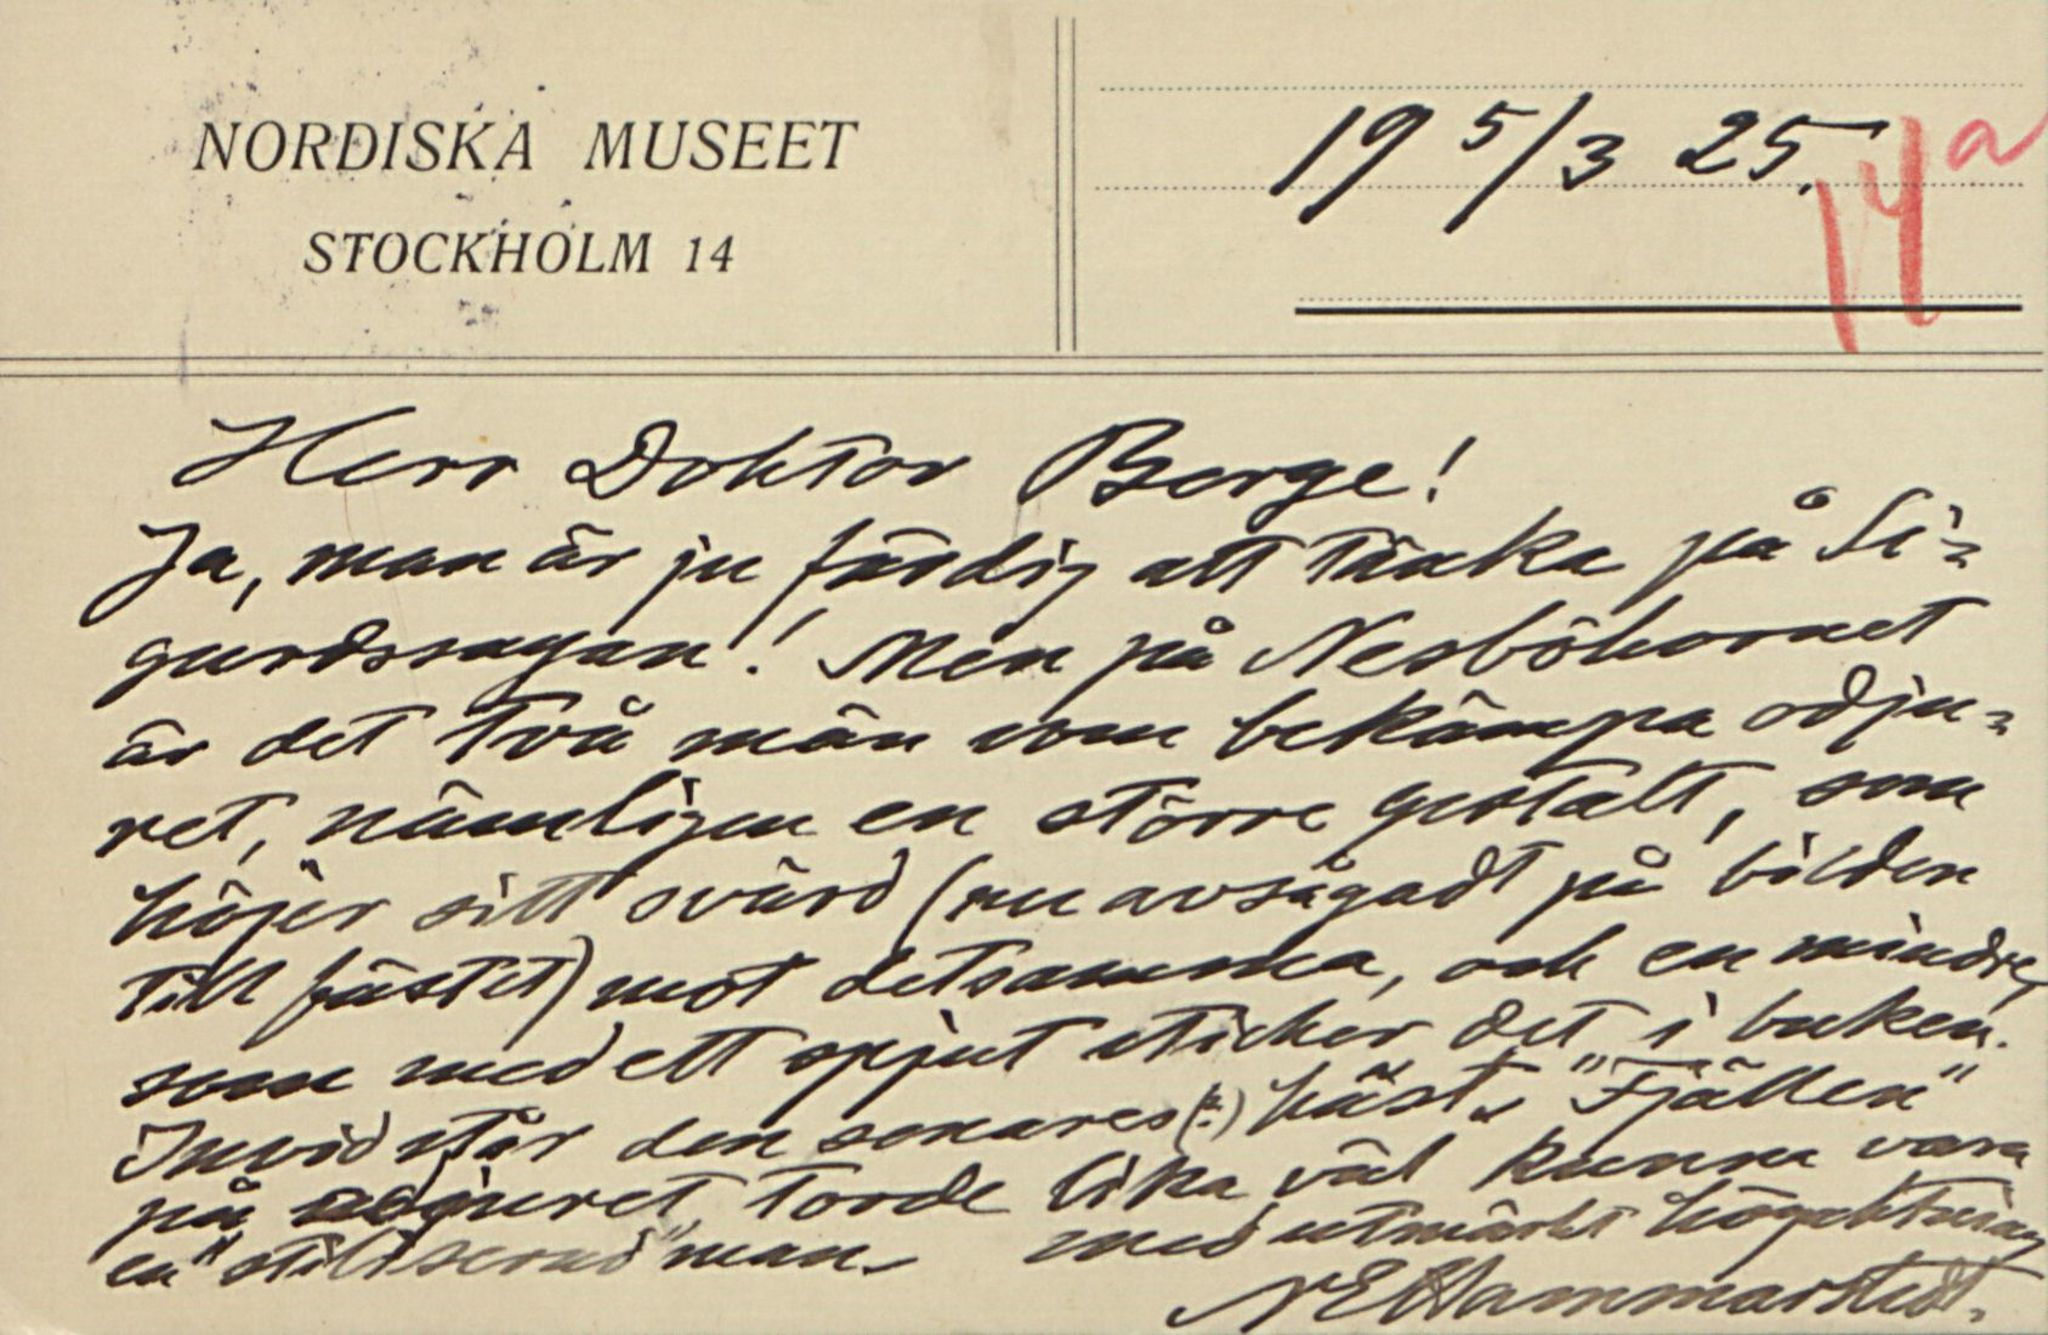 NORDISKA MUSEET
STOCKHOLM 14
19 5/3 25.
14a
Herr Doktor Berge!
Ja, man är ju färdig att tänka på Si-
gurdssagan! Men på Nesböhornet
är det två män som bekämpa odju-
ret, nämligen en större gestalt, som
höjer sitt svärd (nu avsågadt på bilden
till fästet) mot detsamma, och en mindre,
som med ett spjut sticker det i buken.
Invid står den senares(?) häst. "Fjällen"
på odjuret torde lika väl kunna vara
en "stiliserad" man.
med utmärkt högaktning
NEHammarstedt.